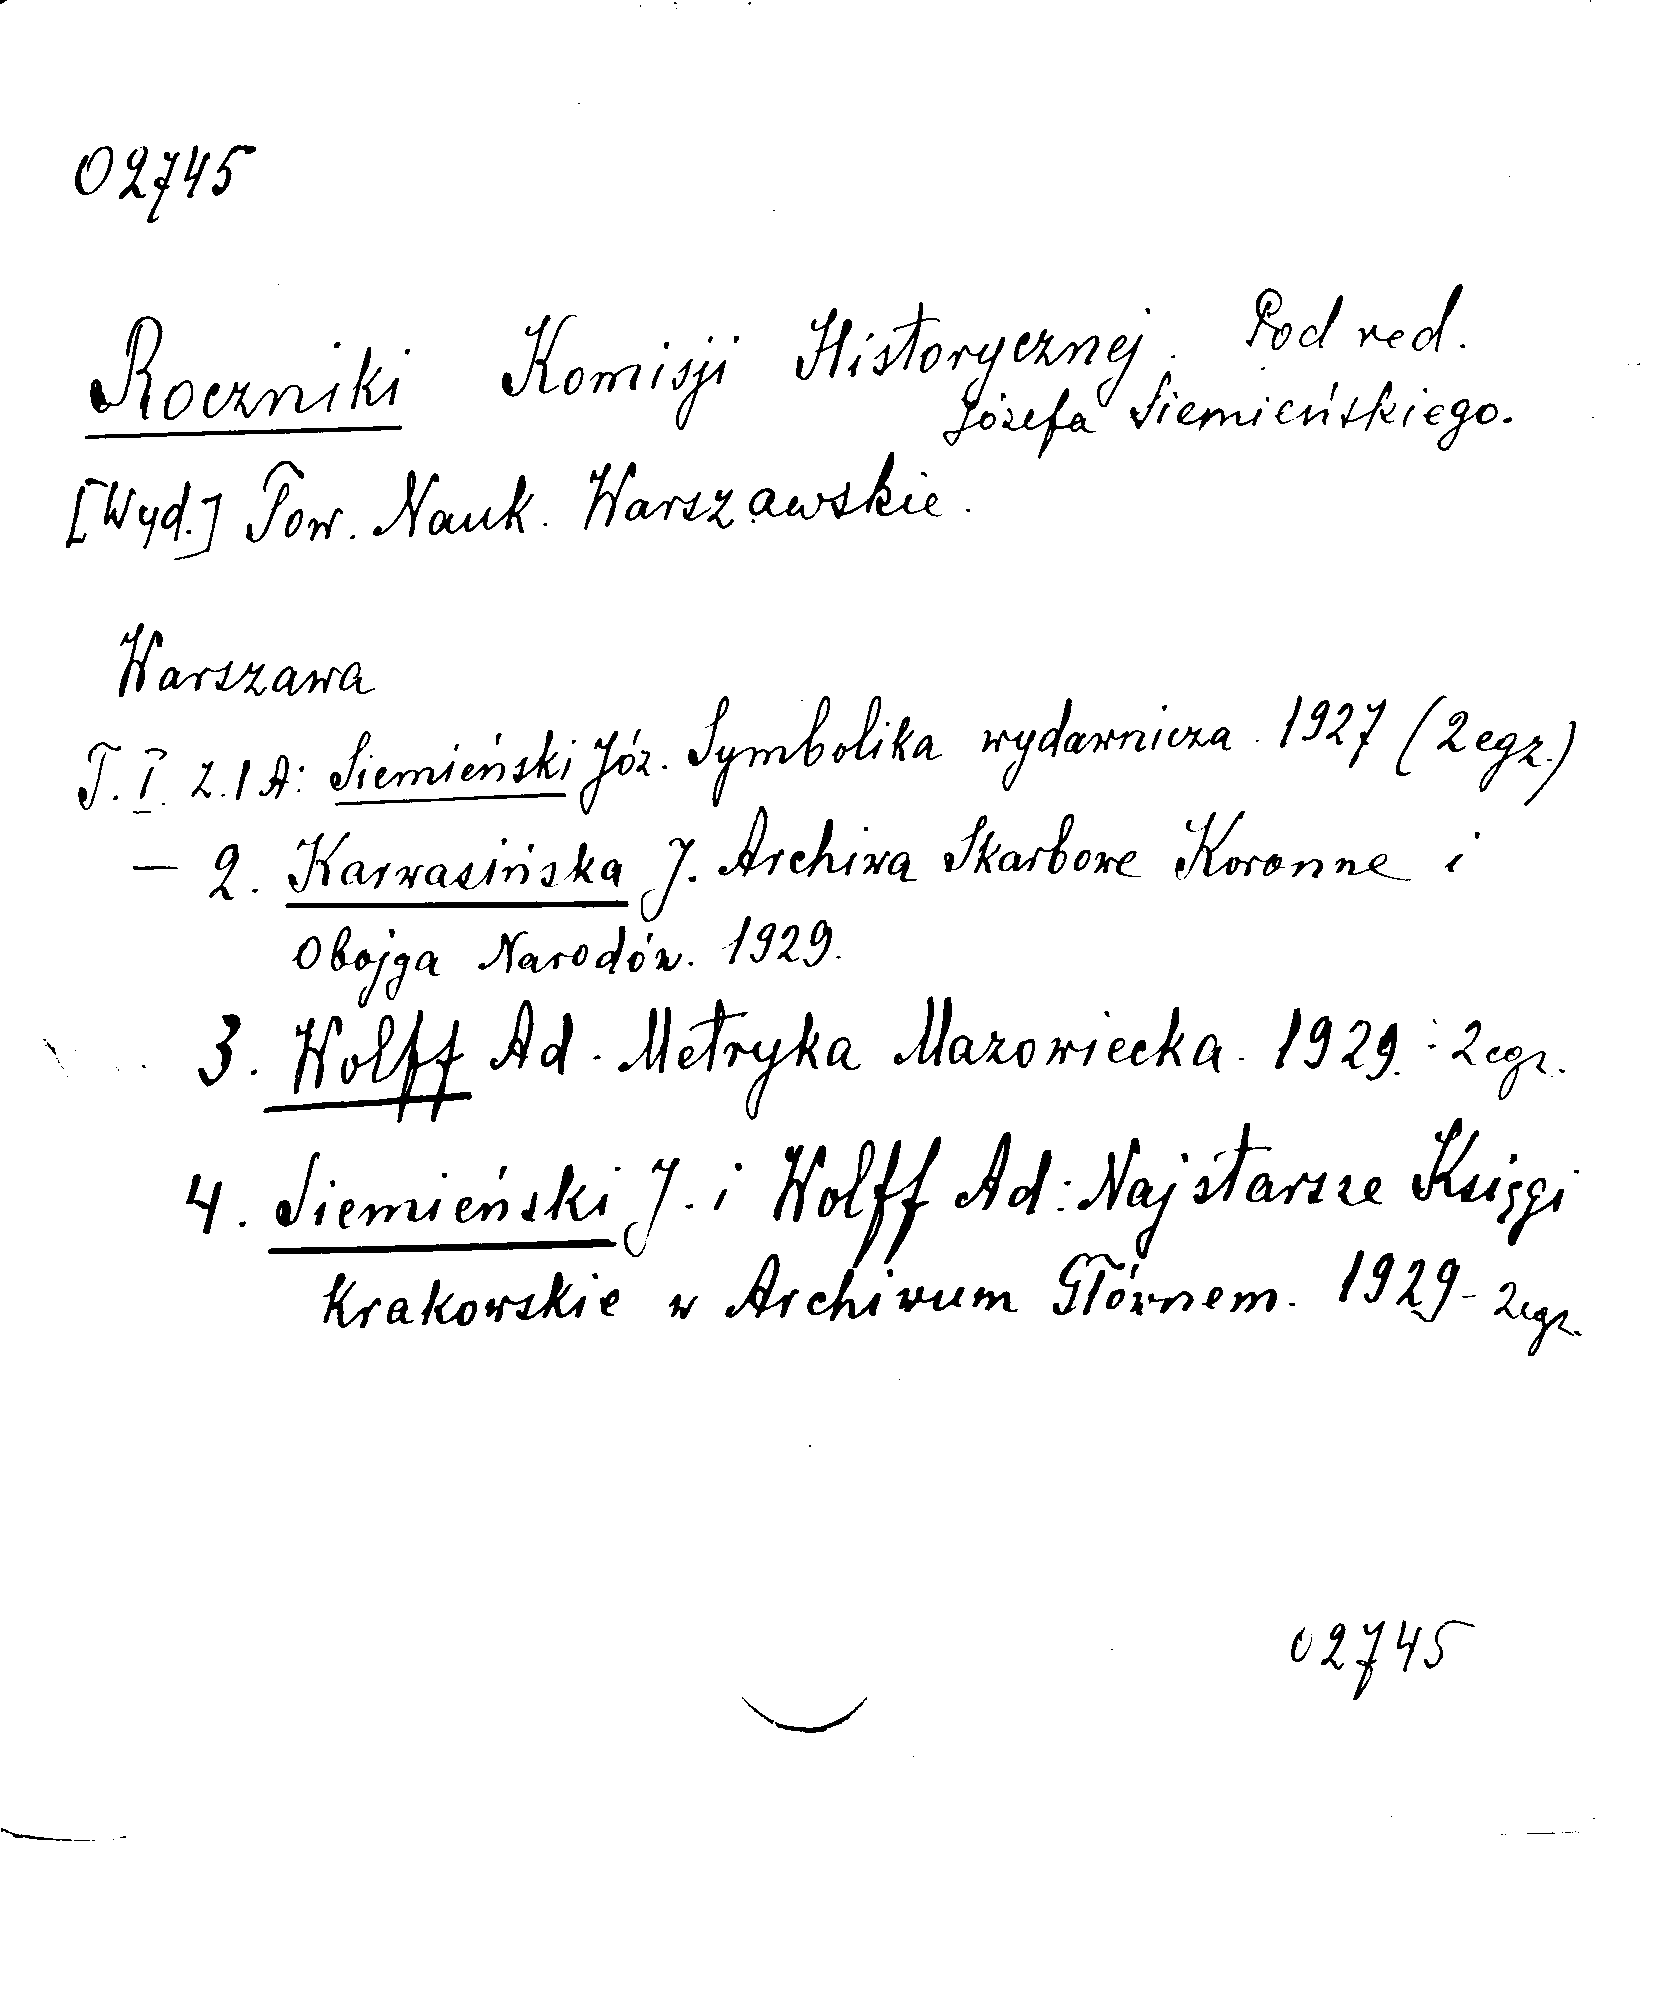 02745
Roczniki Komisji Historycznej. Pod red.
Józefa Siemieńskiego.
[Wyd.] Tow. Nauk. Warszawskie.
Warszawa
T. I. z. 1 A: Siemieński Józ. Symbolika wydawnicza. 1927 (2 egz.)
— 2. Karwasińska J. Archiwa Skarbowe Koronne i
Obojga Narodów. 1929.
3. Wolff Ad. Metryka Mazowiecka. 1929. : 2 egz.
4. Siemieński J. i Wolff Ad: Najstarsze Księgi
Krakowskie w Archiwum Głównem. 1929 - 2 egz.
02745